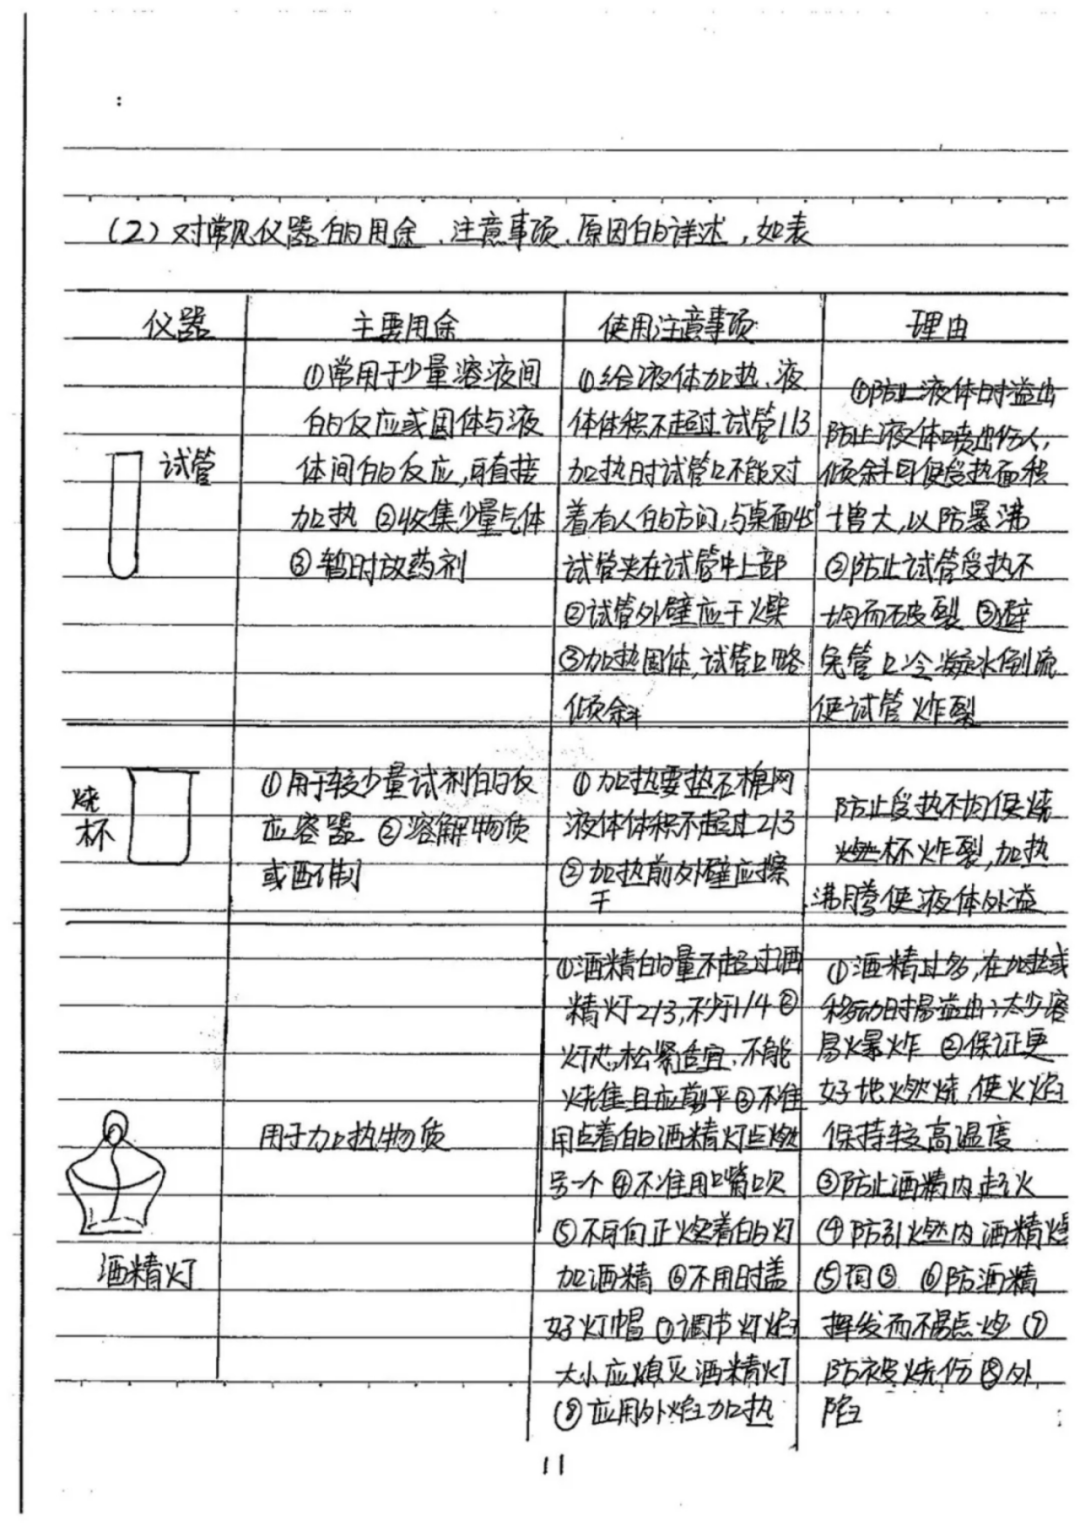 (2)对常见仪器的用途、注意事项、原因的详述,如表
仪器
主要用途
使用注意事项
理由
试管
①常用于少量溶液间
的反应或固体与液
体间的反应,可直接
加热 ②收集少量气体
③暂时放药剂
①给液体加热、液
体体积不超过试管1/3
加热时试管口不能对
着有人的方向,与桌面45°
试管夹在试管中上部
②试管外壁应干燥
③加热固体,试管口略
倾斜
①防止液体时溢出
防止液体喷出伤人,
倾斜可使受热面积
增大,以防暴沸
②防止试管受热不
均而破裂 ③避
免管口冷凝水倒流
使试管炸裂
烧
杯
①用于较少量试剂的反
应容器 ②溶解物质
或配制
①加热要垫石棉网
液体体积不超过2/3
②加热前外壁应擦
干
防止受热不均使烧
杯炸裂,加热
沸腾使液体外溢
酒精灯
用于加热物质
①酒精的量不超过酒
精灯2/3,不少于1/4 ②
灯芯,松紧适宜,不能
烧焦且应剪平③不准
用点着的酒精灯点燃
另一个 ④不准用嘴吹
⑤不可向正燃着的灯
加酒精 ⑥不用时盖
好灯帽 ⑦调节灯焰
大小应熄灭酒精灯
⑧应用外焰加热
①酒精过多,在加热或
移动时易溢出;太少容
易爆炸 ②保证更
好地燃烧,使火焰
保持较高温度
③防止酒精内起火
④防引燃内酒精
⑤同③ ⑥防酒精
挥发而不易点燃 ⑦
防被烧伤 ⑧外
焰
11